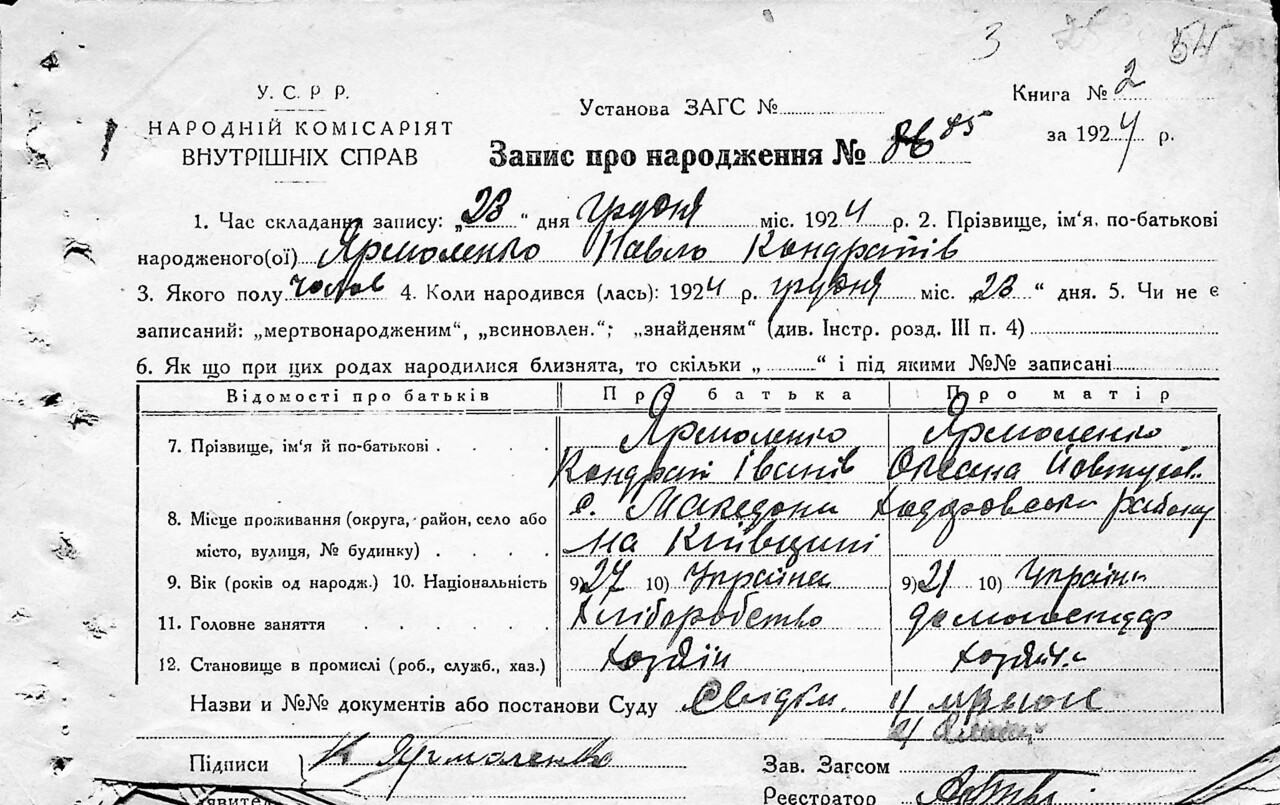 3 25 54
У. С. Р. Р.
НАРОДНІЙ КОМІСАРІЯТ
ВНУТРІШНІХ СПРАВ
Установа ЗАГС №
Книга № 2
за 1924 р.
Запис про народження № 86 85
1. Час складання запису: „23“ дня грудня міс. 1924 р. 2. Прізвище, ім‘я, по-батькові
народженого(ої) Ярмоленко Павло Кондратів
3. Якого полу чолов 4. Коли народився (лась): 1924 р. грудня міс. „23“ дня. 5. Чи не є
записаний: „мертвонародженим“, „всиновлен.“; „знайденям“ (див. Інстр. розд. III п. 4)
6. Як що при цих родах народилися близнята, то скільки „ “ і під якими №№ записані
Відомості про батьків Про батька Про матір
7. Прізвище, ім‘я й по-батькові Ярмоленко Ярмоленко
Кондрат Іванів Оксана Йовтухов.
8. Місце проживання (округа, район, село або с. Македони Ходоровськ району
місто, вулиця, № будинку) на Київщині
9. Вік (років од народж.) 10. Національність 9) 27 10) Українец 9) 21 10) Україн
11. Головне заняття Хліборобство домогосподар
12. Становище в промислі (роб., служб., хаз.) хозяїн хозяїн
Назви и №№ документів або постанови Суду Свідки. 1/
2/
Підписи К Ярмоленко
Зав. Загсом
Реєстратор